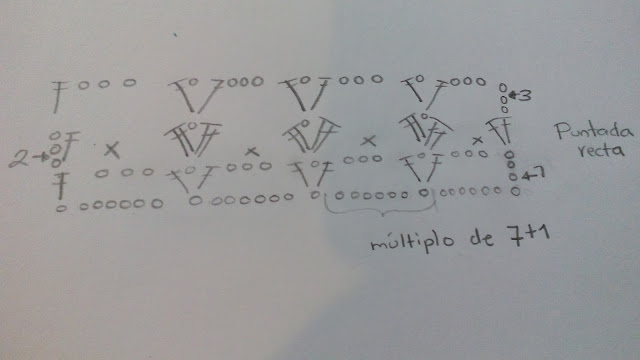 3
2
Puntada
recta
1
múltiplo de 7+1